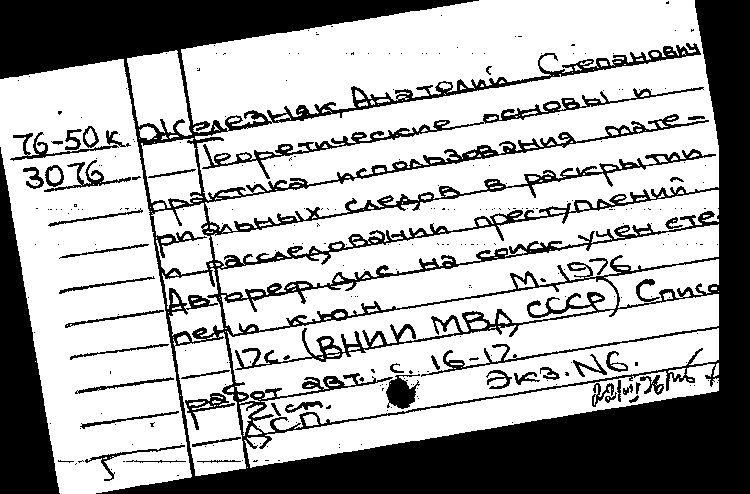 Железняк, Анатолий Степанович
76-50к
Теоретические основы и
3076
практика использования мате-
риальных следов в раскрытии
и расследовании преступлений.
Автореф. дис. на соиск учен сте-
пени к.ю.н. М., 1976.
17с. (ВНИИ МВД СССР) Списо
работ авт.: с. 16-17.
21 ст. Экз. N6.
ДСП.